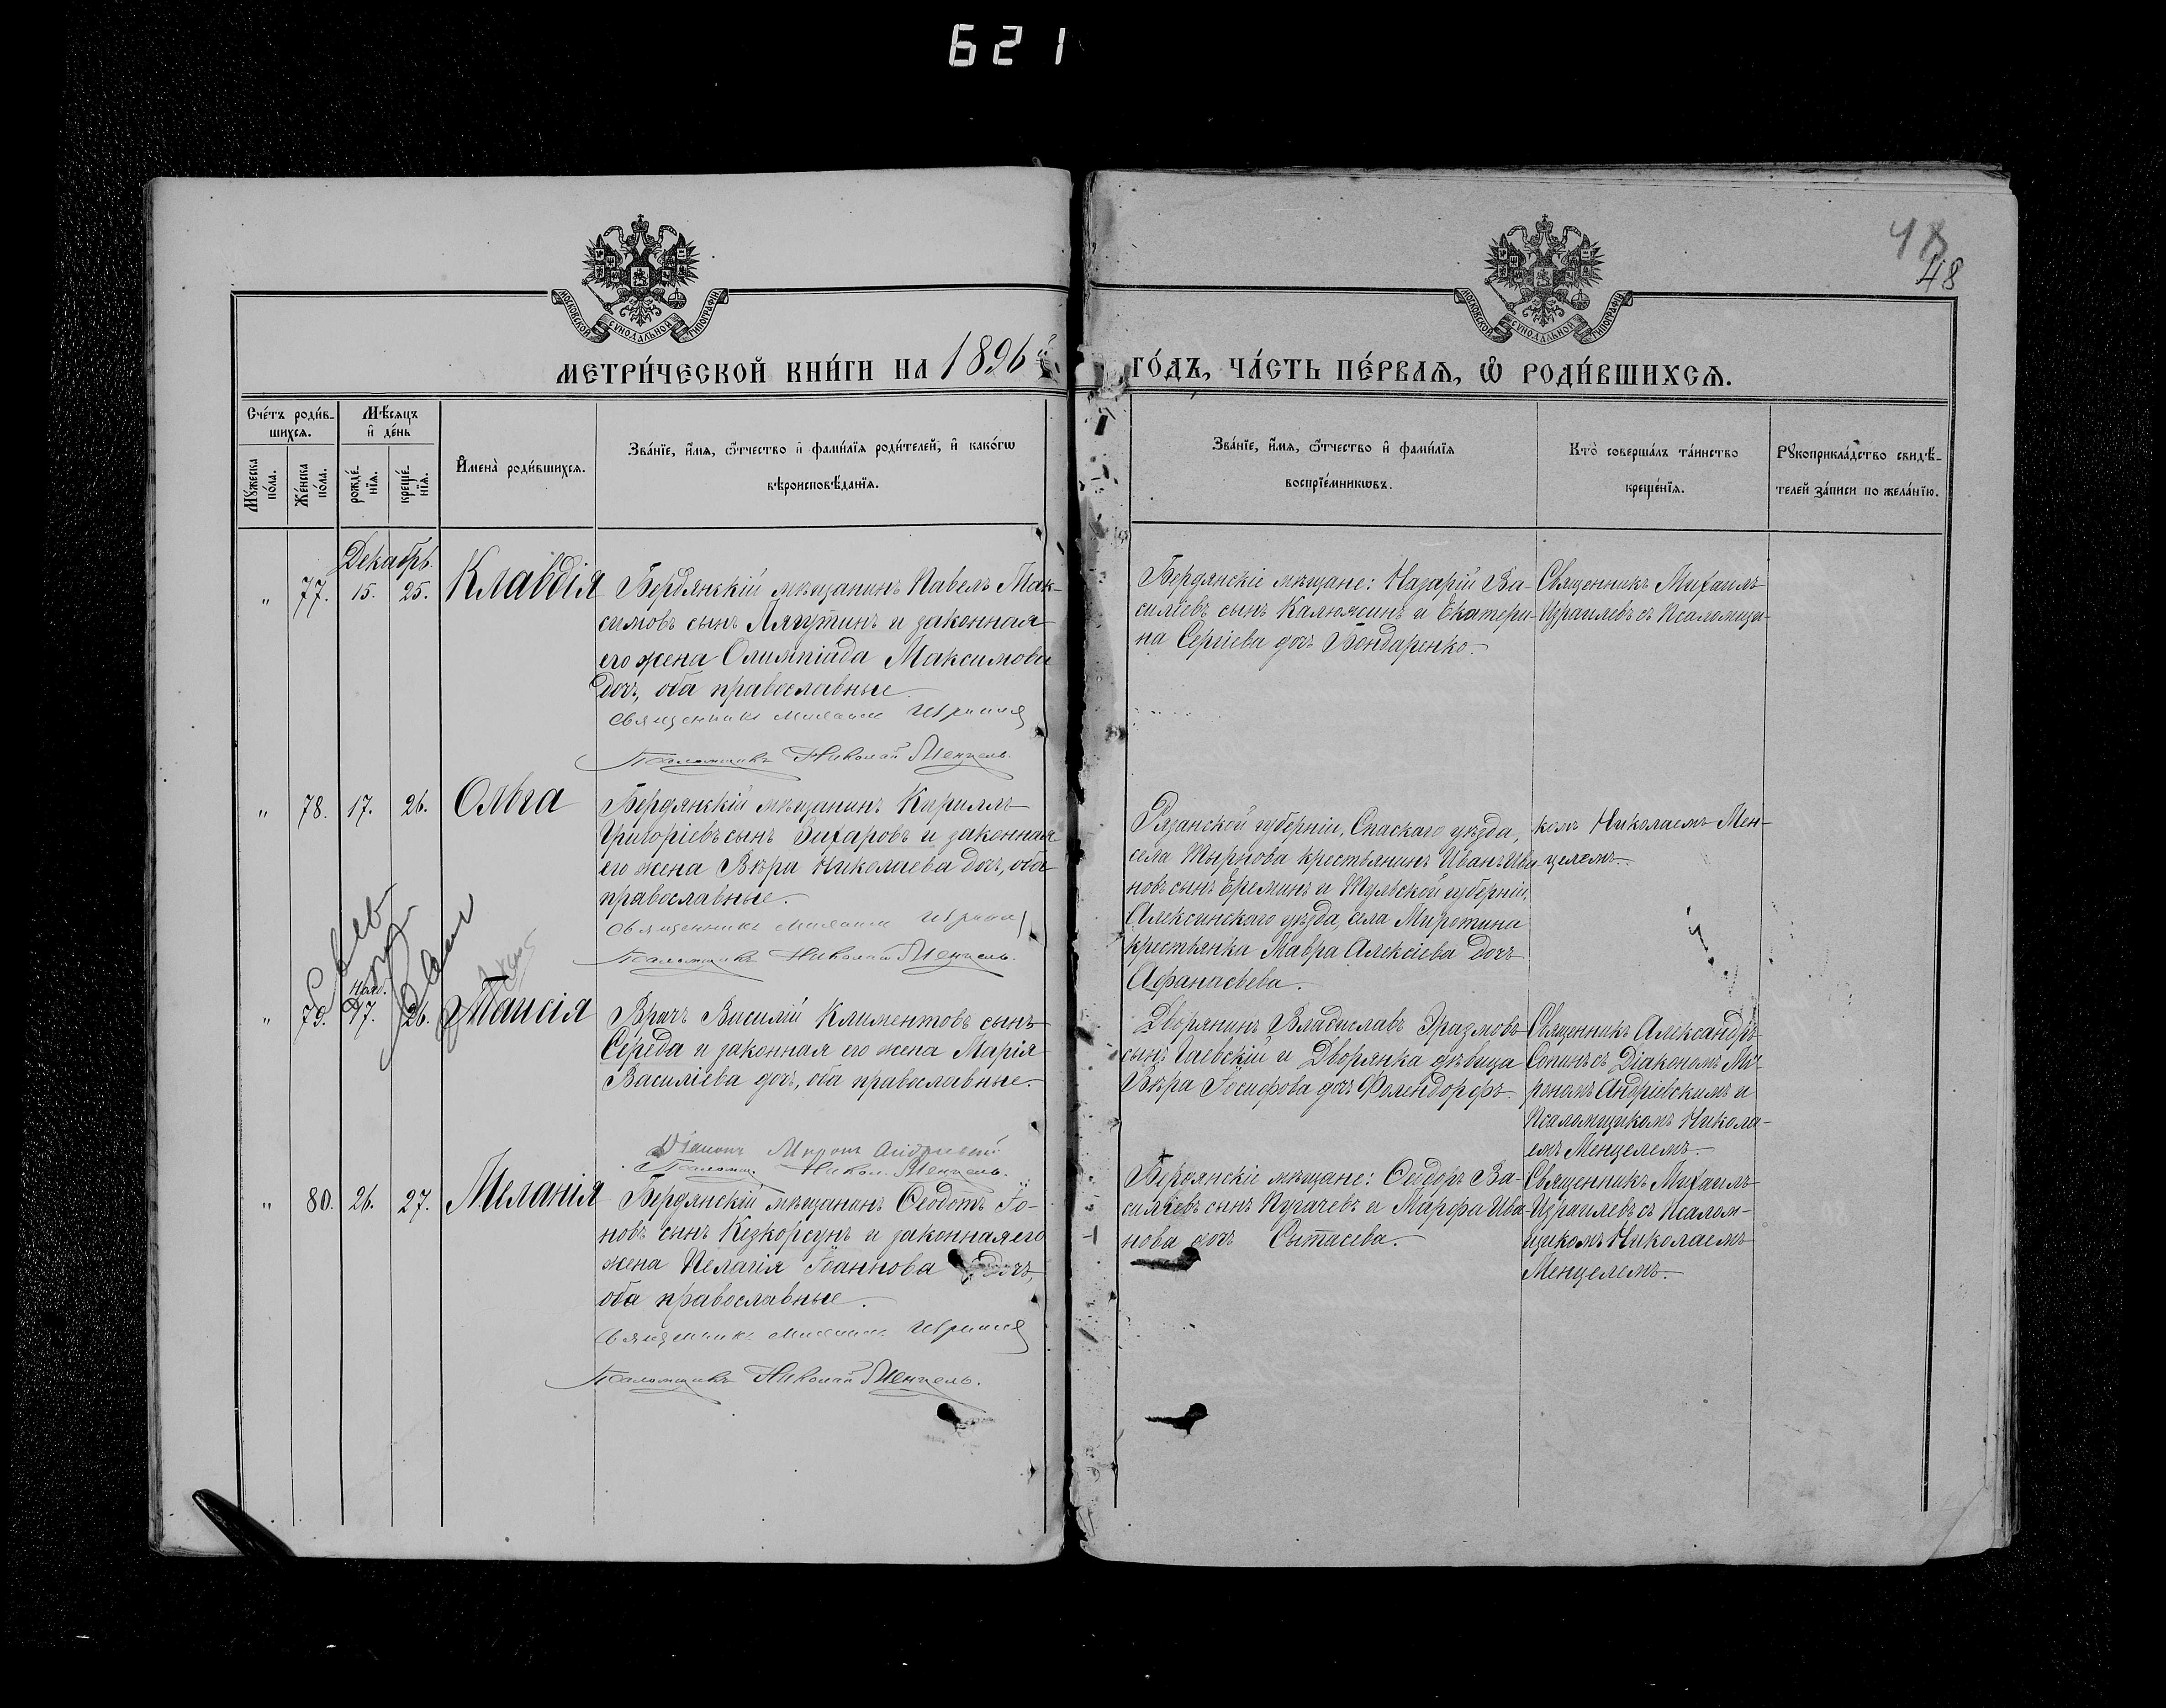 621
48
МОСКОВСКОЙ СѴНОДАЛЬНОЙ ТИПОГРАФІИ
МОСКОВСКОЙ СѴНОДАЛЬНОЙ ТИПОГРАФІИ
МЕТРИ́ЧЕСКОЙ КНИ́ГИ НА 1896й
ГО́ДЪ, ЧА́СТЬ ПЕ́РВАѦ, Ѽ РОДИ́ВШИХСѦ.
Сче́тъ роди́в-
шихсѧ.
Мѣ́сѧцъ
и҆ де́нь
Мꙋ́жеска
по́ла.
Же́нска
по́ла.
рожде́-
нїѧ.
креще́-
нїѧ.
И҆мена̀ роди́вшихсѧ.
Зва́нїе, и҆́мѧ, ѻ҆́тчество и҆ фами́лїѧ роди́телей, и҆ како́гѡ
вѣроисповѣ́данїѧ.
Зва́нїе, и҆́мѧ, ѻ҆́тчество и҆ фами́лїѧ
воспрїе́мникѡвъ.
Кто̀ соверша́лъ та́инство
креще́нїѧ.
Рꙋкоприкла́дство свидѣ́-
телей за́писи по жела́нїю.
Декабрь.
" 77. 15. 25. Клавдія
Бердянскій мѣщанинъ Павелъ Мак-
симовъ сынъ Лягутинъ и законная
его жена Олимпіада Максимова
дочь, оба православные.
Священникъ Михаилъ Израилев
Псаломщикъ Николай Менцель.
Бердянскіе мѣщане: Назарій Ва-
силіевъ сынъ Калюжинъ и Екатери-
на Сергіева дочь Бондаренко.
Священникъ Михаилъ
Израилевъ съ Псаломщи-
" 78. 17. 26. Ольга
Бердянскій мѣщанинъ Кириллъ
Григоріевъ сынъ Захаровъ и законная
его жена Вѣра Николаева дочь, оба
православные.
Священникъ Михаилъ Израилев
Псаломщикъ Николай Менцель.
Рязанской губерніи, Спаскаго уѣзда,
села Тырнова крестьянинъ Иванъ Ива-
новъ сынъ Ереминъ и Тульской губерніи,
Алексинскаго уѣзда, села Миротина
крестьянка Мавра Алексіева дочь
Афанасьева.
комъ Николаемъ Мен-
целемъ.
" 79. 17. 26. Таисія
Нояб.
Врачъ Василій Климентовъ сынъ
Середа и законная его жена Марія
Василіева дочь, оба православные.
Діаконъ Миронъ Андріевскій
Псаломщ. Никол. Менцель.
Дворянинъ Владиславъ Эразмовъ
сынъ Гаевскій и Дворянка дѣвица
Вѣра Іосифова дочь Фолендорфъ.
Священникъ Александръ
Сопинъ съ Діакономъ Ми-
рономъ Андріевскимъ и
Псаломщикомъ Никола-
емъ Менцелемъ.
" 80. 26. 27. Меланія
Бердянскій мѣщанинъ Ѳеодотъ Іо-
новъ сынъ Кезкорсунъ и законная его
жена Пелагія Іоаннова дочь,
оба православные.
Священникъ Михаилъ Израилев
Псаломщикъ Николай Менцель.
Бердянскіе мѣщане: Ѳеодоръ Ва-
силіевъ сынъ Пугачевъ и Марфа Ива-
нова дочь Сытасева.
Священникъ Михаилъ
Израилевъ съ Псалом-
щикомъ Николаемъ
Менцелемъ.